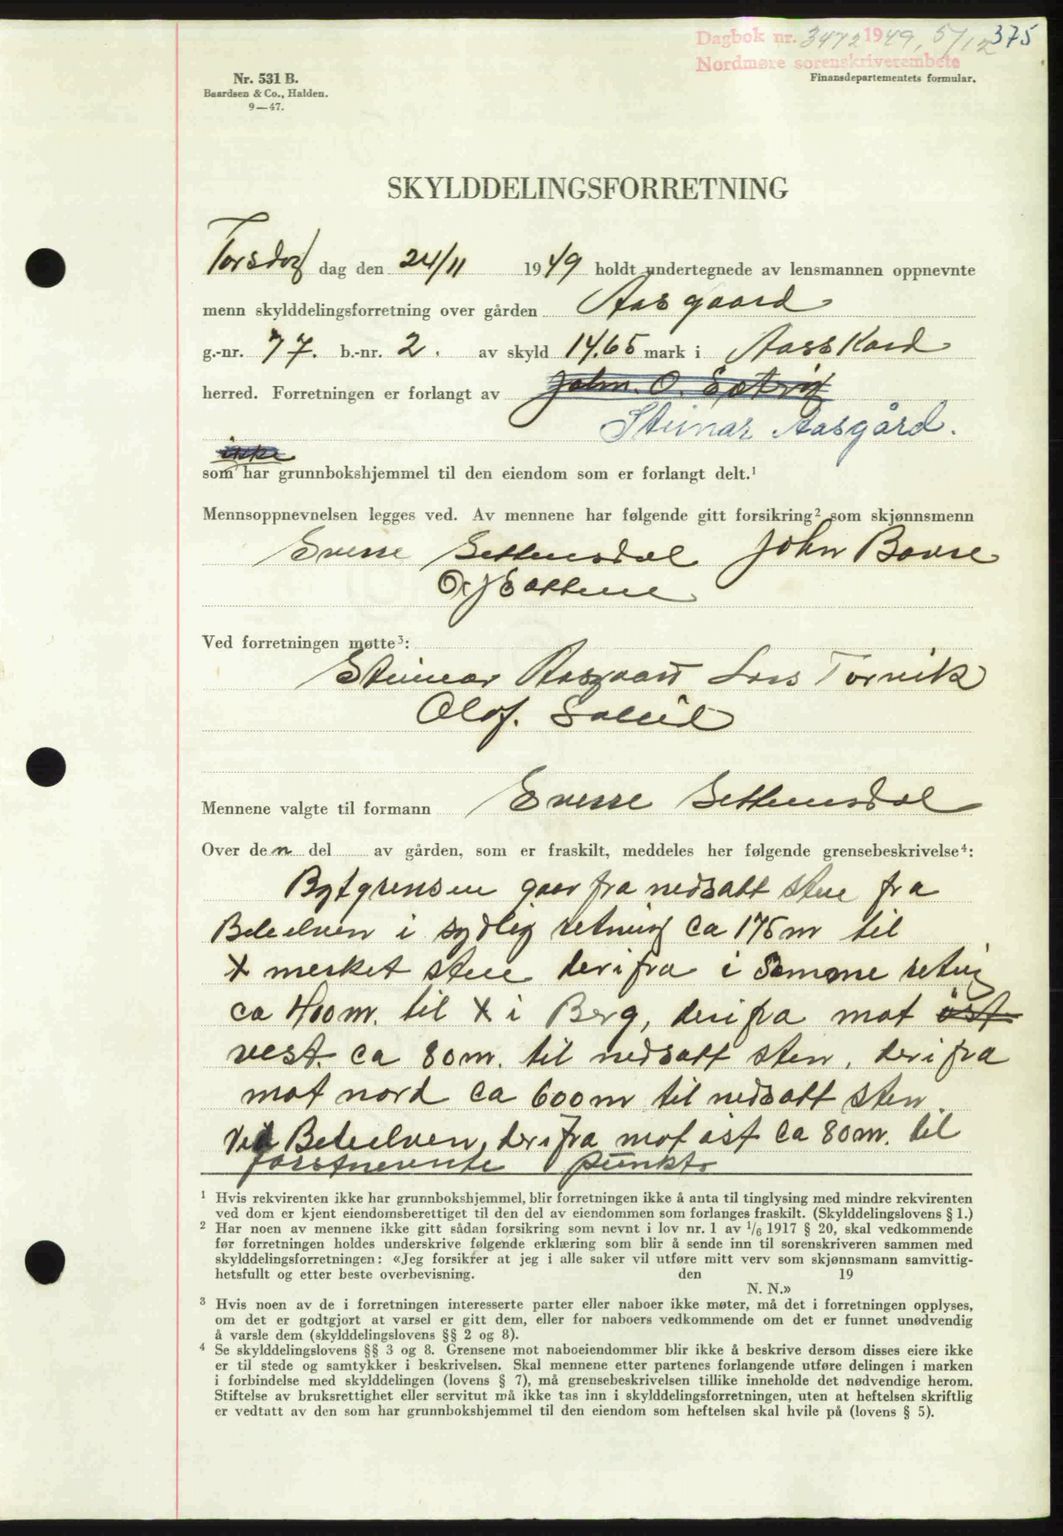 Dagbok nr. 3472 1949, 5/12 375
Nordmøre sorenskriverembete
Nr. 531 B.
Baardsen & Co., Halden.
9—47.
Finansdepartementets formular.
SKYLDDELINGSFORRETNING
Torsdag dag den 24/11 1949 holdt undertegnede av lensmannen oppnevnte
menn skylddelingsforretning over gården Aasgaard
g.-nr. 77. b.-nr. 2. av skyld 14.65 mark i Aasskard
herred. Forretningen er forlangt av
Steinar Aasgård.
ikke
som har grunnbokshjemmel til den eiendom som er forlangt delt.¹
Mennsoppnevnelsen legges ved. Av mennene har følgende gitt forsikring² som skjønnsmenn
Sverre Settemsdal John Bævre
Ved forretningen møtte³:
Steinar Aasgaard Lars Torvik
Olaf. Solli
Mennene valgte til formann Sverre Settemsdal
Over den del av gården, som er fraskilt, meddeles her følgende grensebeskrivelse⁴:
Bytgrensen gaar fra nedsatt sten fra
Beleelven i sydlig retning ca 175 m til
X merket sten derifra i samme retnig
ca 400 m. til X i Berg, derifra mot øst
vest. ca 80 m. til nedsatt sten, derifra
mot nord ca 600 m til nedsatt sten
ved Beleelven, derifra mot øst ca 80 m. til
førstnevnte punkt
¹ Hvis rekvirenten ikke har grunnbokshjemmel, blir forretningen ikke å anta til tinglysing med mindre rekvirenten
ved dom er kjent eiendomsberettiget til den del av eiendommen som forlanges fraskilt. (Skylddelingslovens § 1.)
² Har noen av mennene ikke gitt sådan forsikring som nevnt i lov nr. 1 av 1/6 1917 § 20, skal vedkommende
før forretningen holdes underskrive følgende erklæring som blir å sende inn til sorenskriveren sammen med
skylddelingsforretningen: «Jeg forsikrer at jeg i alle saker vil utføre mitt verv som skjønnsmann samvittig-
hetsfullt og etter beste overbevisning. den 19
N. N.»
³ Hvis noen av de i forretningen interesserte parter eller naboer ikke møter, må det i forretningen opplyses,
om det er godtgjort at varsel er gitt dem, eller for naboers vedkommende om det er funnet unødvendig
å varsle dem (skylddelingslovens §§ 2 og 8).
⁴ Se skylddelingslovens §§ 3 og 8. Grensene mot naboeiendommer blir ikke å beskrive dersom disses eiere ikke
er til stede og samtykker i beskrivelsen. Skal mennene etter partenes forlangende utføre delingen i marken
i forbindelse med skylddelingen (lovens § 7), må grensebeskrivelsen tillike inneholde det nødvendige herom.
Stiftelse av bruksrettighet eller servitut må ikke tas inn i skylddelingsforretningen, uten at heftelsen skriftlig
er vedtatt av den som har grunnbokshjemmel til den eiendom som heftelsen skal hvile på (lovens § 5).